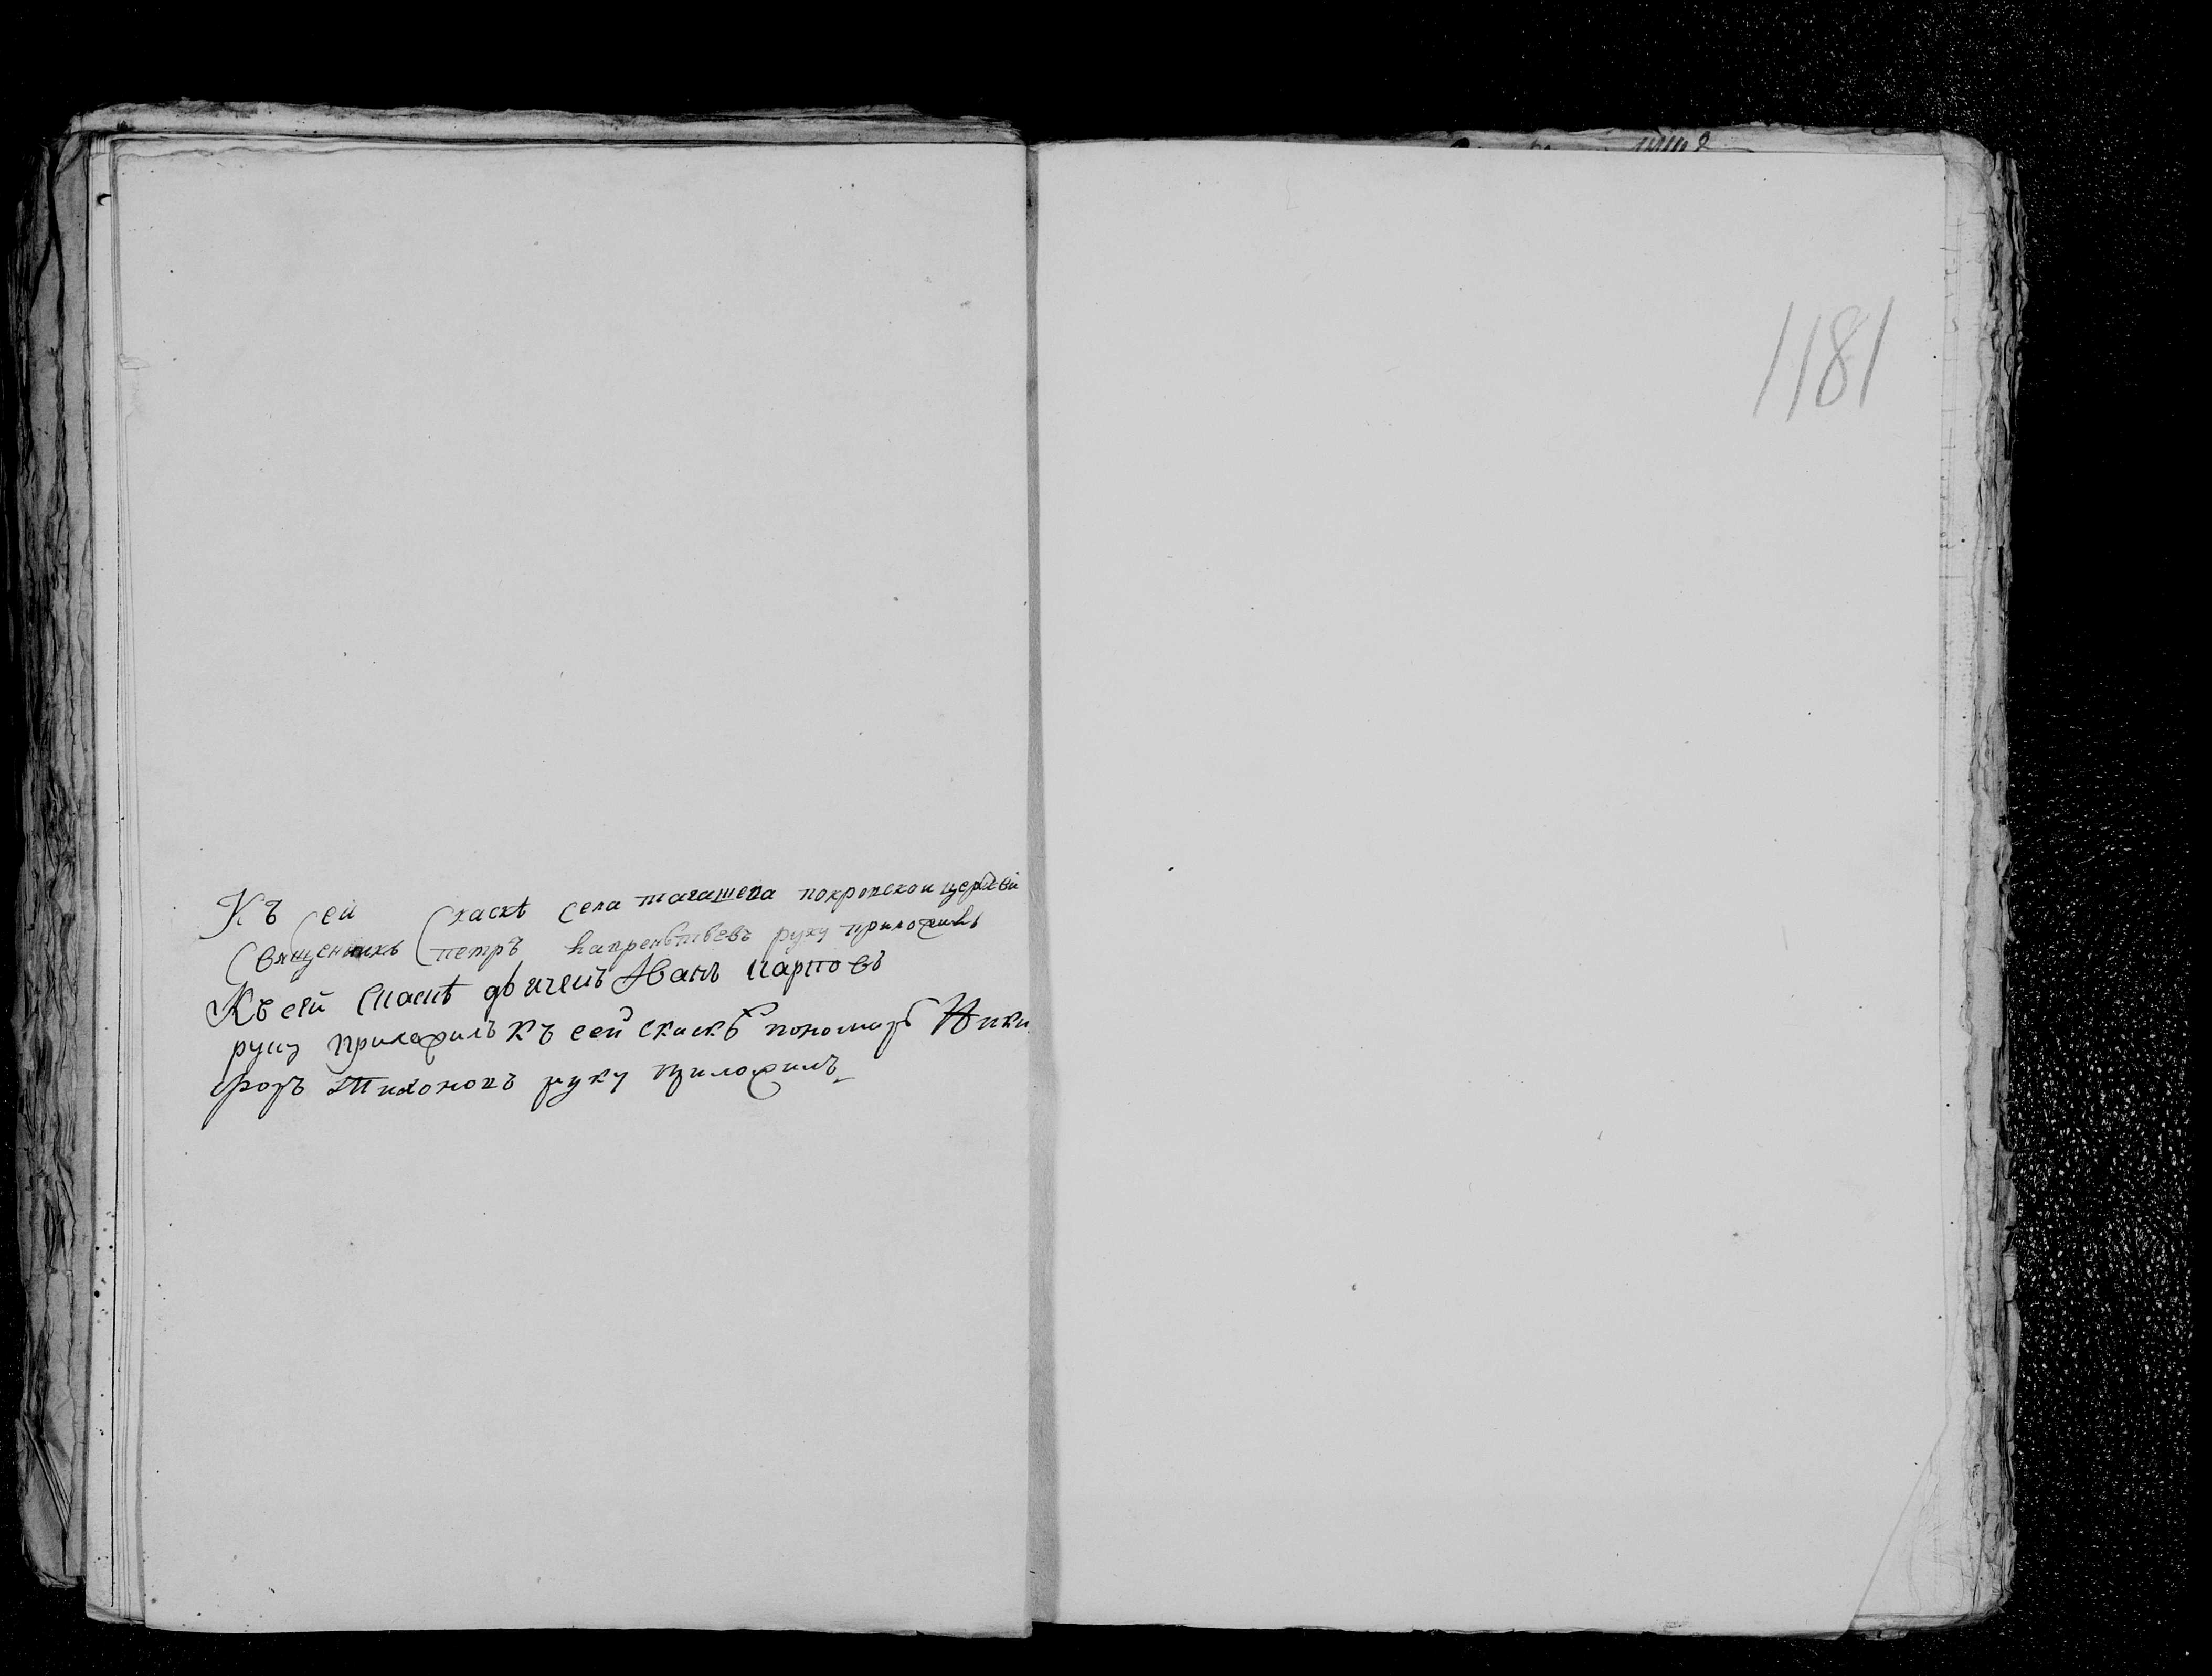 1181
Къ сей скаскѣ села тагашева покровскои церкви
священникъ петръ лаврентьевъ руку приложилъ
Къ сей скаскѣ дьячекъ Иванъ карповъ
руку приложилъ къ сей скаскѣ пономарь Ники
форъ Тихоновъ руку приложилъ